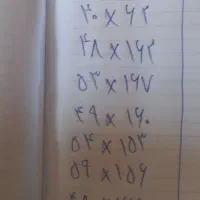 ۴۰ x ۶۲
۴۸ x ۱۶۲
۵۳ x ۱۶۷
۴۹ x ۱۶۰
۵۴ x ۱۵۳
۵۹ x ۱۵۶